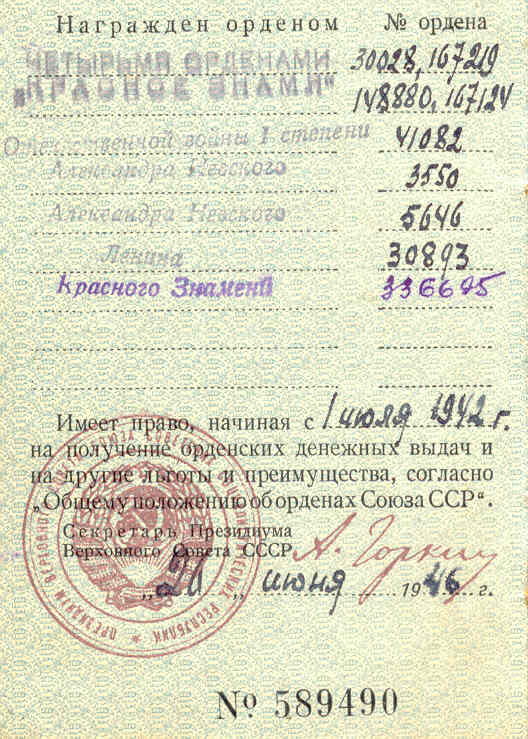 Награжден орденом № ордена
ЧЕТЫРЬМЯ ОРДЕНАМИ 30028, 167219
„КРАСНОЕ ЗНАМЯ" 148880, 167124
Отечественной войны I степени 41082
Александра Невского 3550
Александра Невского 5646
Ленина 30893
Красного Знамени 336685
Имеет право, начиная с 1 июля 1942 г.
на получение орденских денежных выдач и
на другие льготы и преимущества, согласно
„Общему положению об орденах Союза ССР“.
Секретарь Президиума
Верховного Совета СССР А. Горкин
июня 1946 г.
ПРЕЗИДИУМ ВЕРХОВНОГО СОВЕТА СОЮЗА СОВЕТСКИХ СОЦИАЛИСТИЧЕСКИХ РЕСПУБЛИК
№ 589490